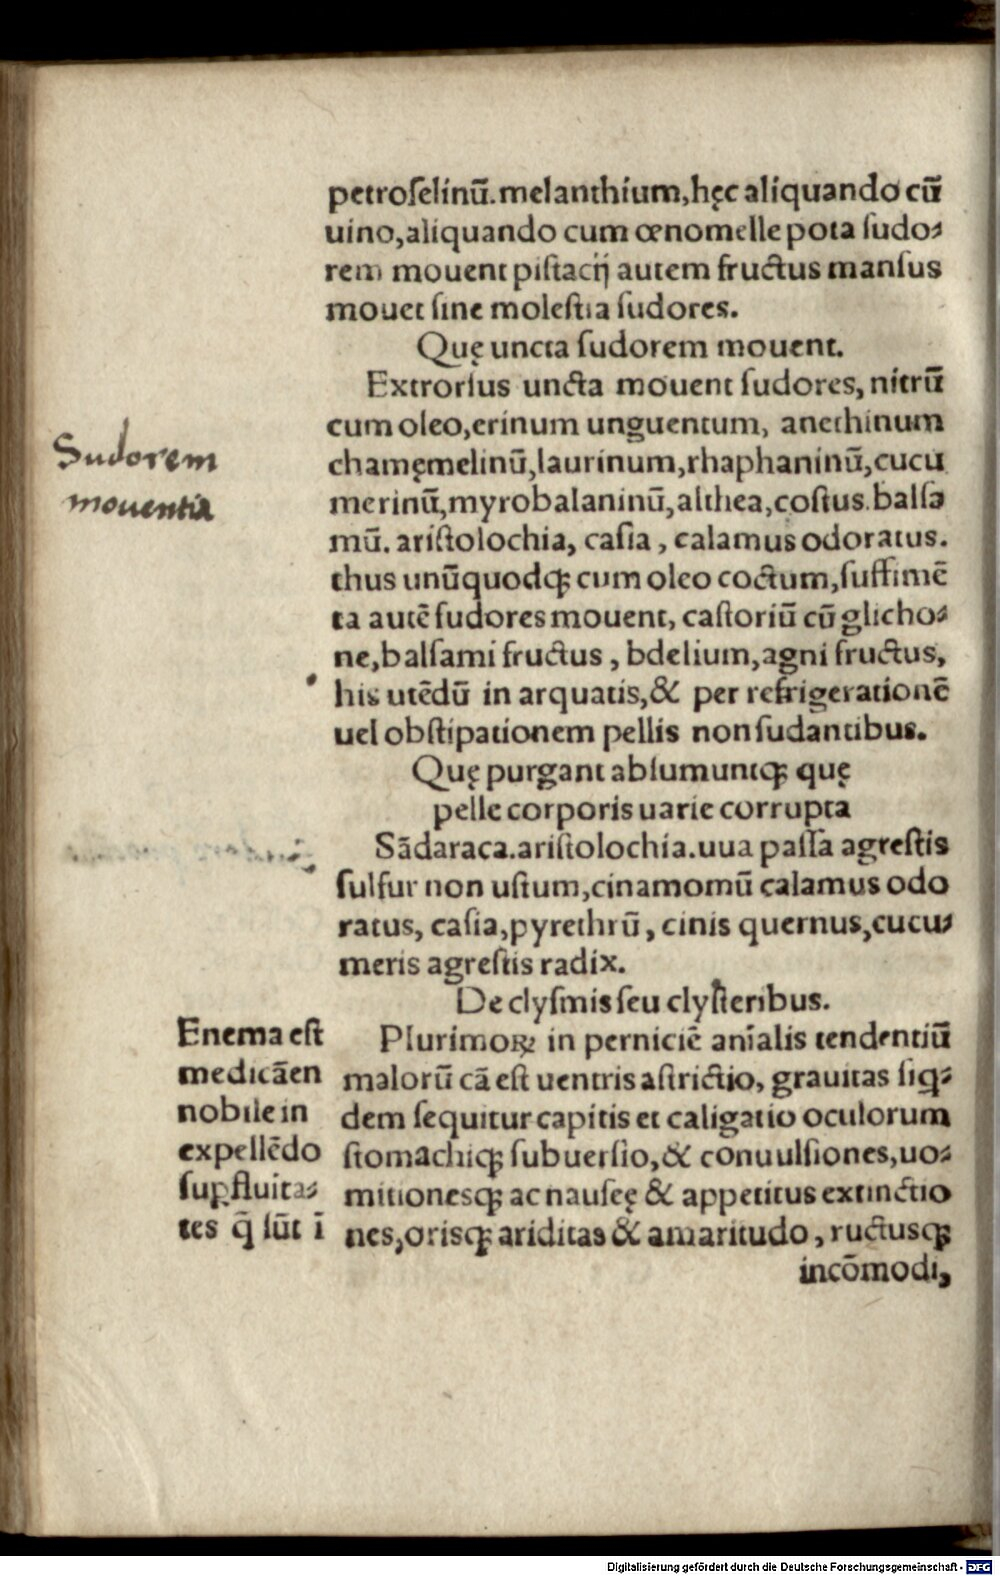 petroſelinū. melanthium, hęc aliquando cū
uino, aliquando cum œnomelle pota ſudo⸗
rem mouent piſtacij autem fructus manſus
mouet ſine moleſtia ſudores.
Quę uncta ſudorem mouent.
Extrorſus uncta mouent ſudores, nitrū
cum oleo, erinum unguentum, anethinum
chamęmelinū, laurinum, rhaphaninū, cucu
merinū, myrobalaninū, althea, coſtus. balſa
mū. ariſtolochia, caſia, calamus odoratus.
thus unūquodqꝫ cum oleo coctum, ſuffimē
ta autē ſudores mouent, caſtoriū cū glicho⸗
ne, balſami fructus, bdelium, agni fructus,
his utēdū in arquatis, & per refrigerationē
uel obſtipationem pellis non ſudantibus.
Sudorem
mouentia
Quę purgant abſumuntqꝫ quę
pelle corporis uarie corrupta
Sādaraca. ariſtolochia. uua paſſa agreſtis
ſulfur non uſtum, cinamomū calamus odo
ratus, caſia, pyrethrū, cinis quernus, cucu⸗
meris agreſtis radix.
De clyſmis ſeu clyſteribus.
Plurimoꝝ in perniciē anīalis tendentiū
malorū cā eſt uentris aſtrictio, grauitas ſiq⸗
dem ſequitur capitis et caligatio oculorum
ſtomachiqꝫ ſubuerſio, & conuulſiones, uo⸗
mitionesqꝫ ac nauſeę & appetitus extinctio
nes, orisqꝫ ariditas & amaritudo, ructusqꝫ
incōmodi,
Enema eſt
medicāen
nobile in
expellēdo
ſuꝑfluita⸗
tes q̄ ſūt ī
Digitalisierung gefördert durch die Deutsche Forschungsgemeinschaft - DFG